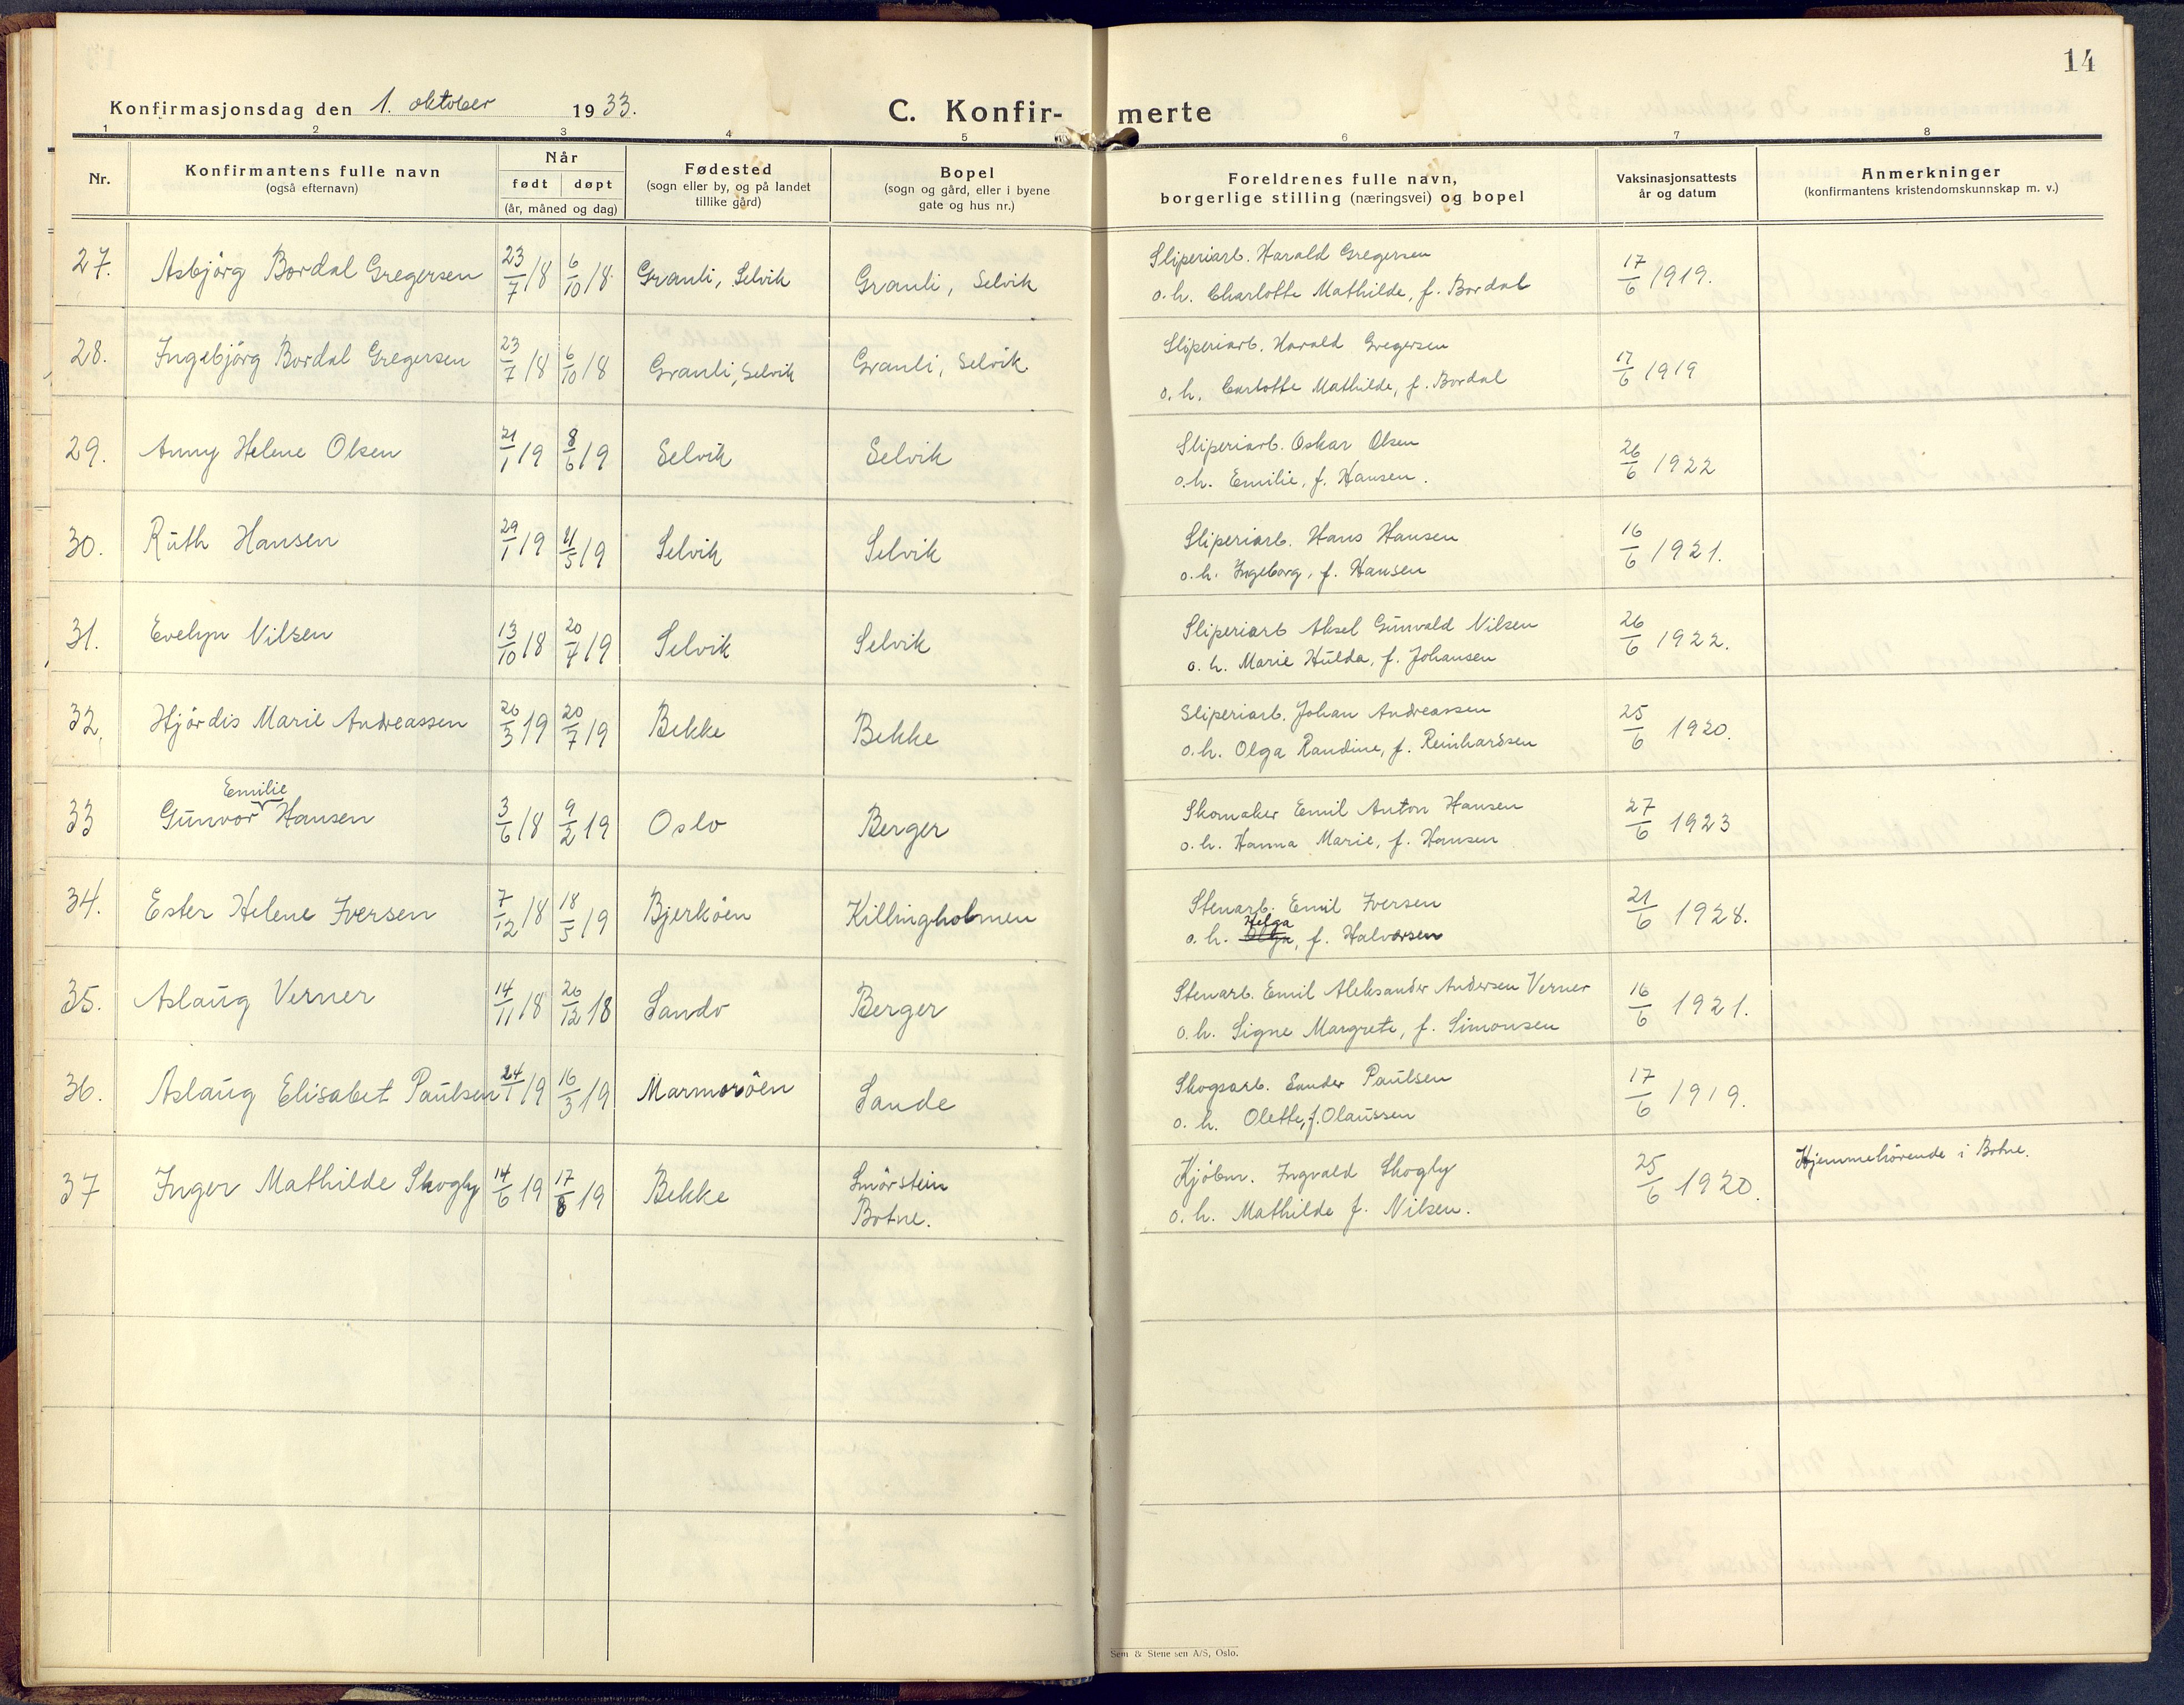 14
Konfirmasjonsdag den 1. oktober 1933.
C. Konfirmerte
1 2 3 4 5 6 7 8
Nr.
Konfirmantens fulle navn
(også efternavn)
Når
født døpt
(år, måned og dag)
Fødested
(sogn eller by, og på landet
tillike gård)
Bopel
(sogn og gård, eller i byene
gate og hus nr.)
Foreldrenes fulle navn,
borgerlige stilling (næringsvei) og bopel
Vaksinasjonsattests
år og datum
Anmerkninger
(konfirmantens kristendomskunnskap m. v.)
27. Asbjörg Bordal Gregersen 23/7 18 6/10 18. Granli, Selvik Granli, Selvik Sliperiarb. Harald Gregersen 17/6 1919.
o. h. Charlotte Mathilde, f. Bordal
28. Ingebjörg Bordal Gregersen 23/7 18 6/10 18 Granli, Selvik Granli, Selvik. Sliperiarb. Harald Gregersen 17/6 1919
o. h. Carlotte Mathilde, f. Bordal
29. Anny Helene Olsen 21/1 19 8/6 19 Selvik Selvik Sliperiarb. Oskar Olsen 26/6 1922
o. h. Emilie, f. Hansen.
30. Ruth Hansen 29/1 19 11/5 19 Selvik Selvik Sliperiarb. Hans Hansen 16/6 1921.
o. h. Ingeborg, f. Hansen
31. Evelyn Nilsen 13/10 18 20/4 19 Selvik Selvik Sliperiarb Aksel Gunvald Nilsen 26/6 1922.
o. h. Marie Hulda, f. Johansen
32. Hjördis Marie Andreassen 26/3 19 20/7 19 Bekke Bekke Sliperiarb. Johan Andreassen 25/6 1920.
o. h. Olga Randine, f. Reinhardsen
Emilie
33 Gunvor Hansen 3/6 18 9/2 19 Oslo Berger Skomaker Emil Anton Hansen 27/6 1923
o. h. Hanna Marie, f. Hansen
34. Ester Helene Iversen 7/12 18 18/5 19 Bjerköen Killingholmen Stenarb. Emil Iversen 21/6 1928.
Helga
o. h. Olga, f. Halvorsen
35. Aslaug Verner 14/11 18 26/12 18 Sando Berger Stenarb. Emil Aleksander Andersen Verner 16/6 1921.
o. h. Signe Margrete, f. Simonsen
36. Aslaug Elisabet Paulsen 24/1 19 16/3 19 Marmoröen Sande Skogsarb. Sander Paulsen 17/6 1919.
o. h. Olette, f. Olaussen
37 Inger Mathilde Skogly 14/6 19 17/8 19 Bekke Smörstein Kjöbm. Ingvald Skogly 25/6 1920. Hjemmehörende i Botne.
Botne. o. h. Mathilde f. Nilsen.
Sem & Stenersen A/S, Oslo.